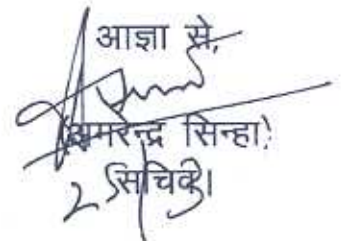 आज्ञा से,
(अमरेन्द्र सिन्हा)
सचिव।